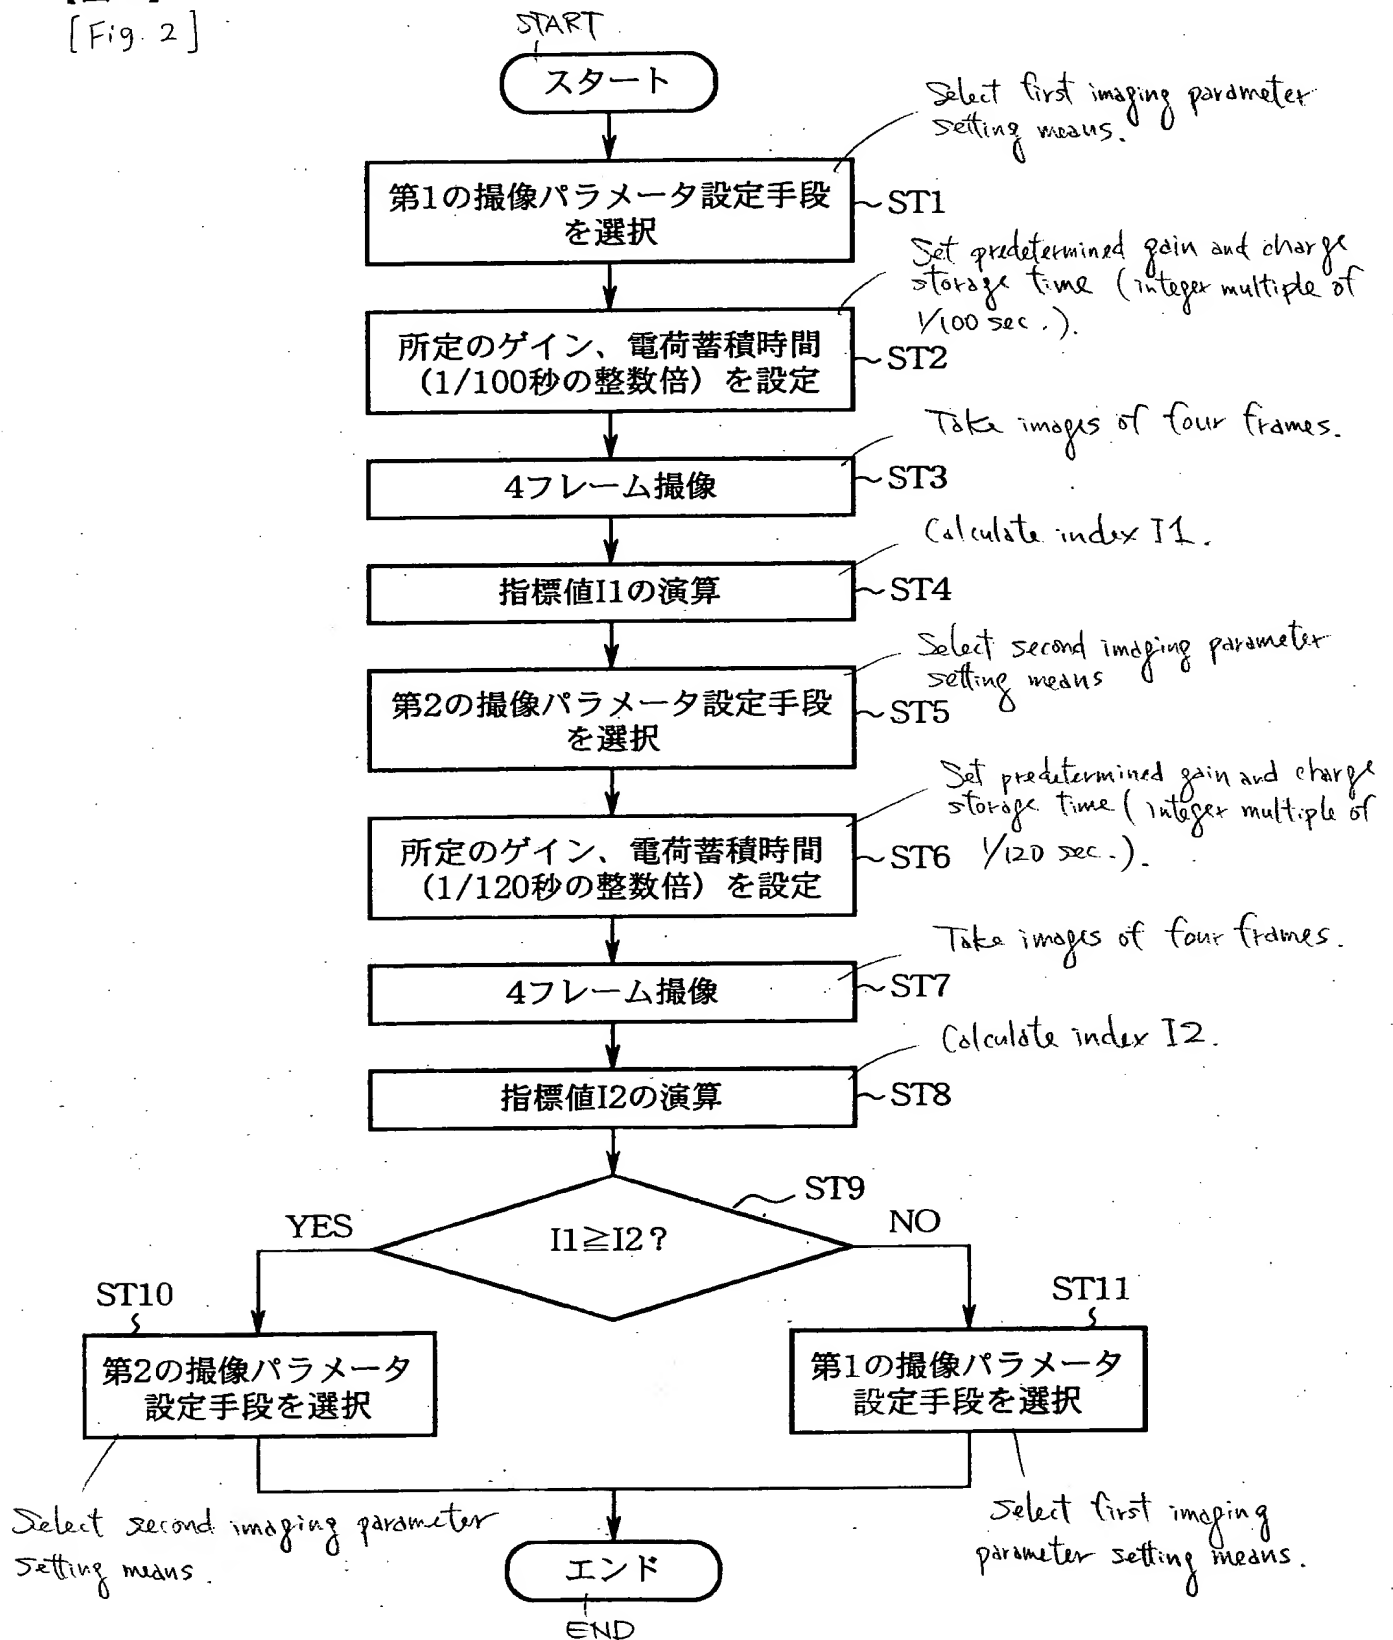 [Fig. 2]
START
スタート
Select first imaging parameter
setting means.
第1の撮像パラメータ設定手段
を選択
ST1
Set predetermined gain and charge
storage time (integer multiple of
1/100 sec.).
所定のゲイン、電荷蓄積時間
(1/100秒の整数倍) を設定
ST2
Take images of four frames.
4フレーム撮像
ST3
Calculate index I1.
指標値I1の演算
ST4
Select second imaging parameter
setting means
第2の撮像パラメータ設定手段
を選択
ST5
Set predetermined gain and charge
storage time (integer multiple of
1/120 sec.).
所定のゲイン、電荷蓄積時間
(1/120秒の整数倍) を設定
ST6
Take images of four frames.
4フレーム撮像
ST7
Calculate index I2.
指標値I2の演算
ST8
ST9
I1≧I2?
YES
NO
ST10
第2の撮像パラメータ
設定手段を選択
ST11
第1の撮像パラメータ
設定手段を選択
Select second imaging parameter
setting means.
Select first imaging
parameter setting means.
エンド
END